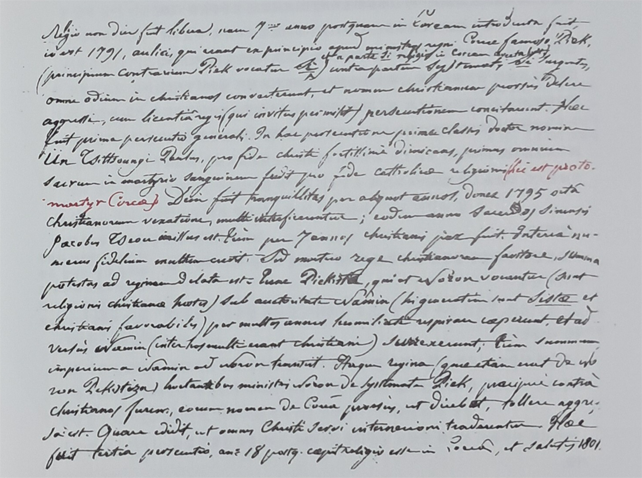 Religio non diu fuit libera, nam 7mo anno postquam in Coream introducta fuit,
id est 1791, aulici, qui erant ex principio apud ministros regni Coreae famoso Piek,
(principium contrarium Piek vocatur Si et a parte Si religio in Coream
omne odium in christianos converterunt, et nomen christianum prorsus delere
aggressi, cum licentia regis (qui invitus permisit) persecutionem concitarunt. Haec
fuit prima persecutio generalis. In hac persecutione primae classis doctor nomine
Un Paulus, pro fide Christi fortissime dimicans, primus omnium
suum in martyrio sanguinem fudit pro fide catholicae religionis (hic est proto-
martyr Coreae). Diu fuit tranquillitas per aliquot annos, donec 1795 orta
christianorum vexatione, multi interficerentur; eodem anno Sacerdos Sinensis
Jacobus Tseou missus est. Tum per 7 annos christianis pax fuit. Interea nu-
merus fidelium multum crevit. Sed mortuo rege christianorum fautore, summa
potestas ad reginam delata est. Tunc qui et Noron vocantur (sunt
religionis christianae hostes) sub auctoritate Namin (hi quoque sunt et
christianis favorabiles) per multos annos humiliati respirare coeperunt, et ad-
versus Namin (inter hos multi erant christiani) surrexerunt; Tum summum
imperium a Namin ad Noron transivit. Itaque regina (quae etiam erat de No-
ron ) hortantibus ministris Noron de systemate Piek, praecipue contra
christianos furens, eorum nomen de Corea penitus, ut dicebat, tollere aggre-
sa est. Quare edidit, ut omnes Christi servi internecioni traderentur. Haec
fuit tertia persecutio, an: 18 postq. coepit religio esse in Corea, et salutis 1801.